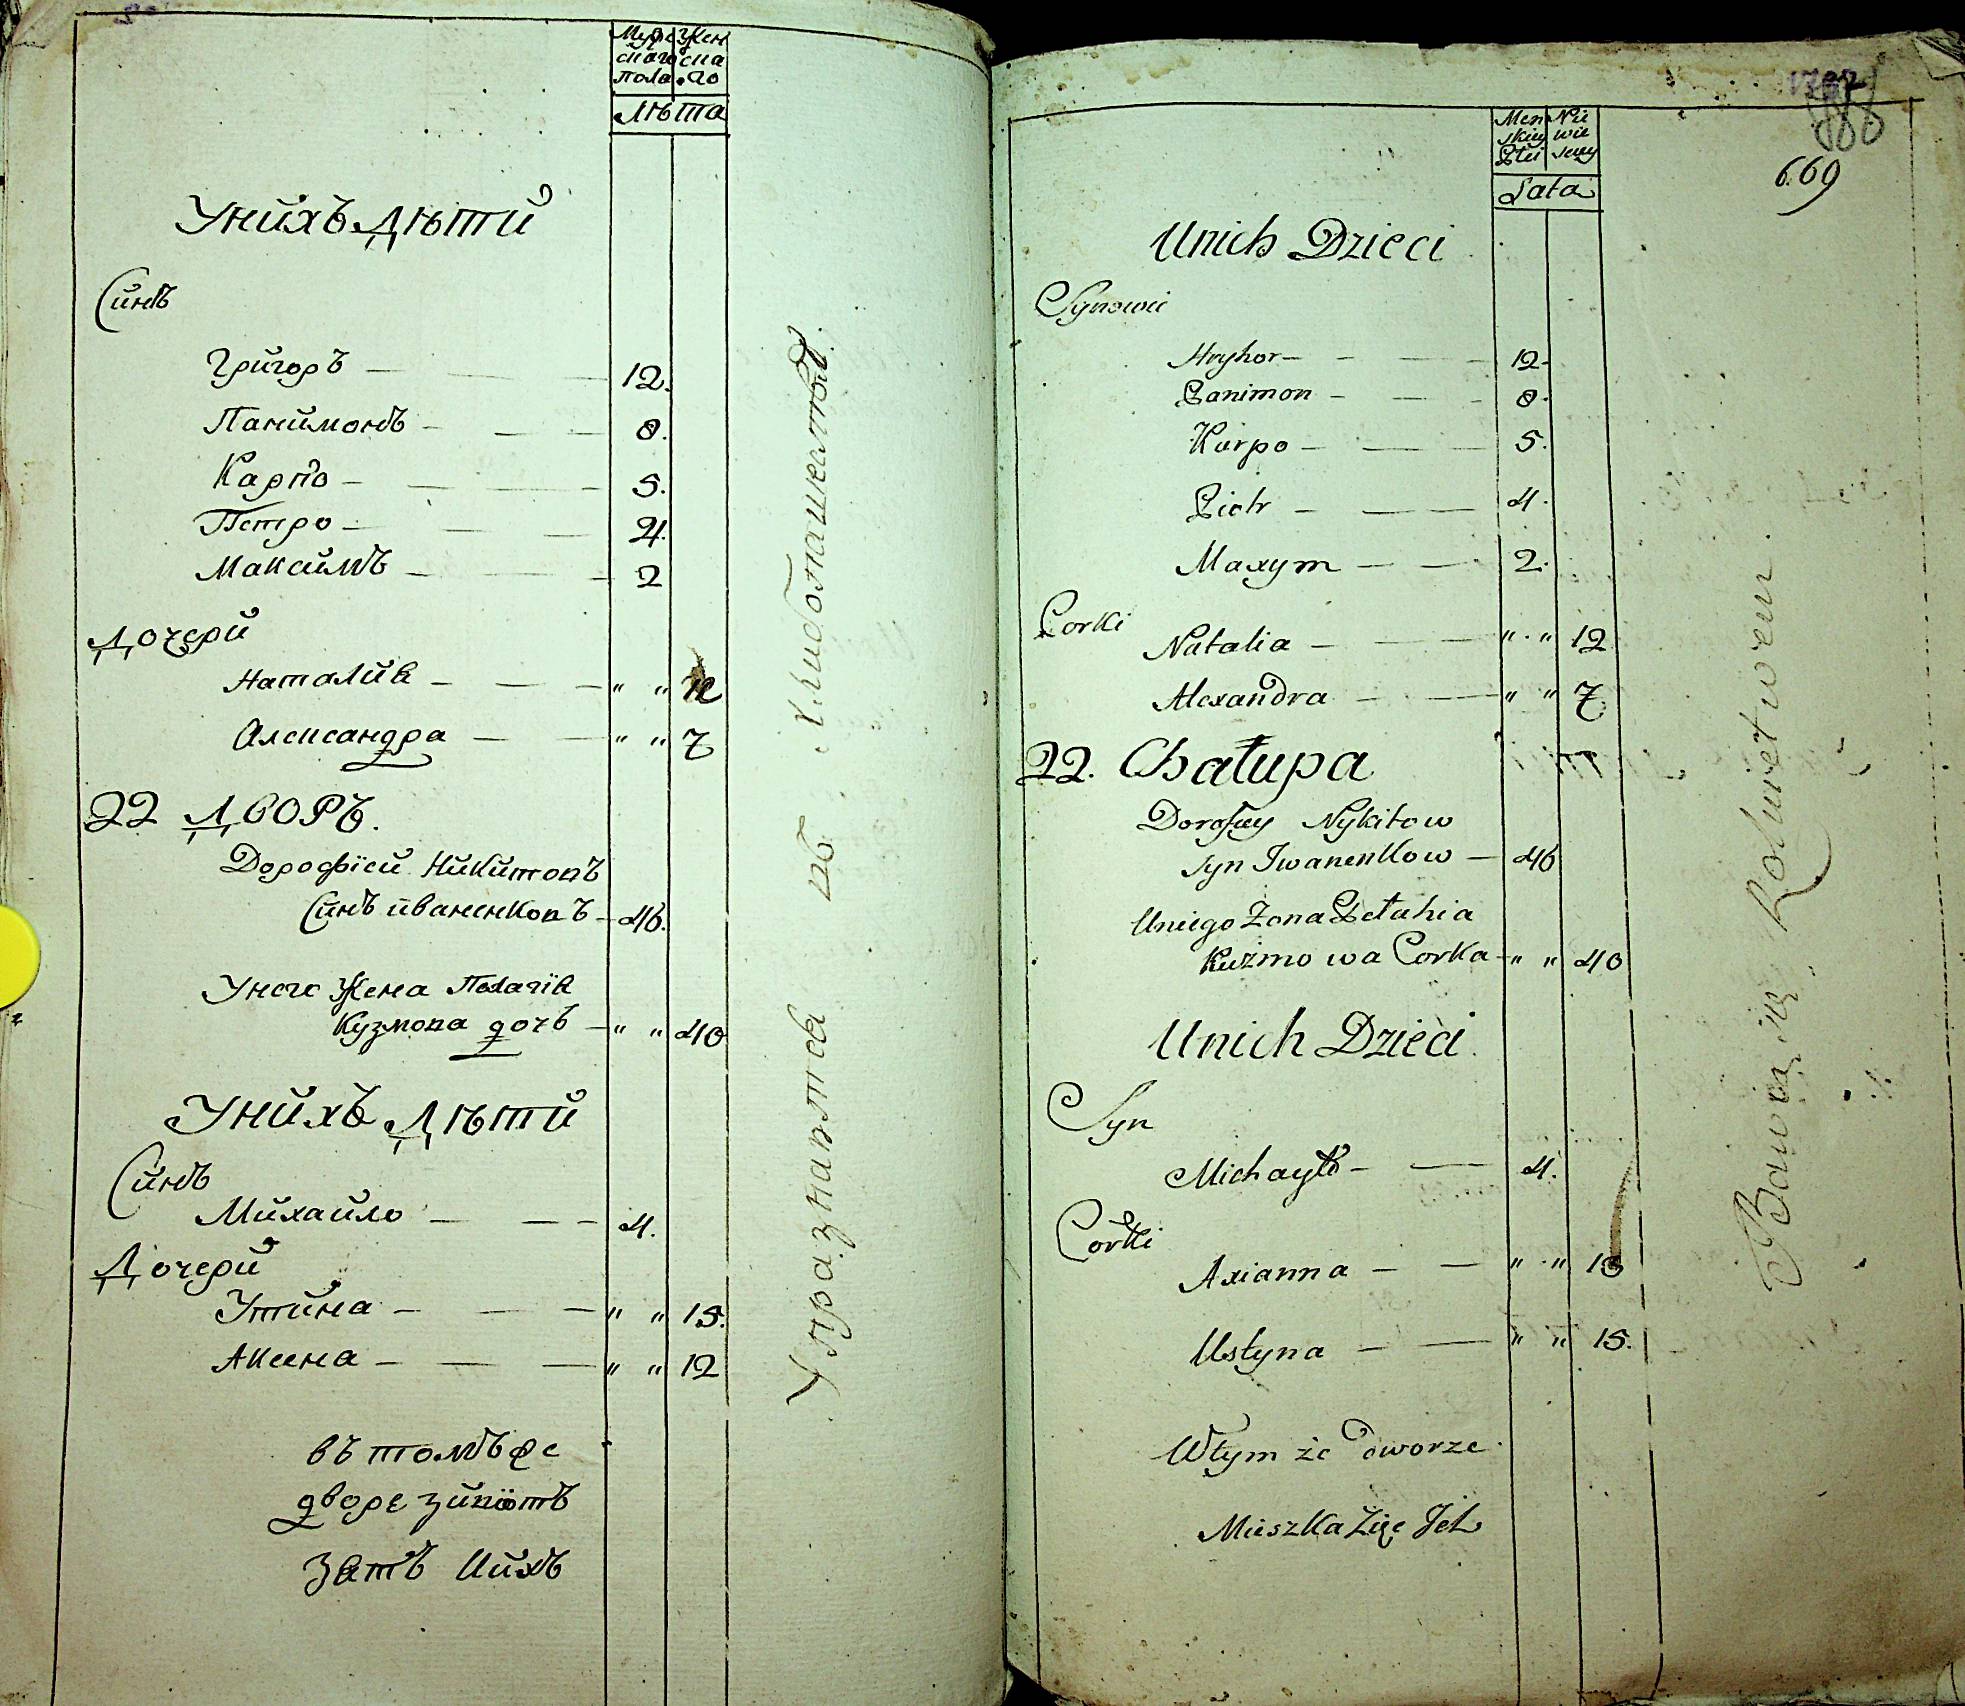 Муже Жен
скаго ска
пола .го
Лѣта
Унйхъ Дѣтй
Сйнъ
Григоръ — 12.
Панймонъ — 8.
Карпо — 5.
Петро — 4.
Максймъ — 2
Дочерй
Наталйя — " " 12
Александра — " " 7
22 Дворъ.
Дорофїей Нйкйтовъ
Сйнъ йваненковъ — 46.
Унего Жена Пелагїя
Кузмова дочъ — " " 40
Унйхъ Дѣтй
Сйнъ
Мйхайло — 4.
Дочерй
Устйна — " " 15.
Аксена — " " 12
въ томъ же
дворе жйвіотъ
Зятъ Ийхъ
Упражняется въ Хлибопашестве.
Men Nie
skiey wie
Płci sciey
Lata
669
Unich Dzieci
Synowie
Hryhor — 12.
Panimon — 8.
Karpo — 5.
Piotr — 4.
Maxym — 2.
Corki
Natalia — " " 12
Alexandra — " " 7
22. Chałupa
Dorofiey Nykitow
syn Iwanenkow — 46
Uniego Żona Pełahia
Kuźmowa Corka — " " 40
Unich Dzieci
Syn
Michayło — 4.
Corki
Axianna — " "
Ustyna — " " 15.
Wtym że dworze
Mieszka Zięć Ich
Bawią się Rolnictwem.